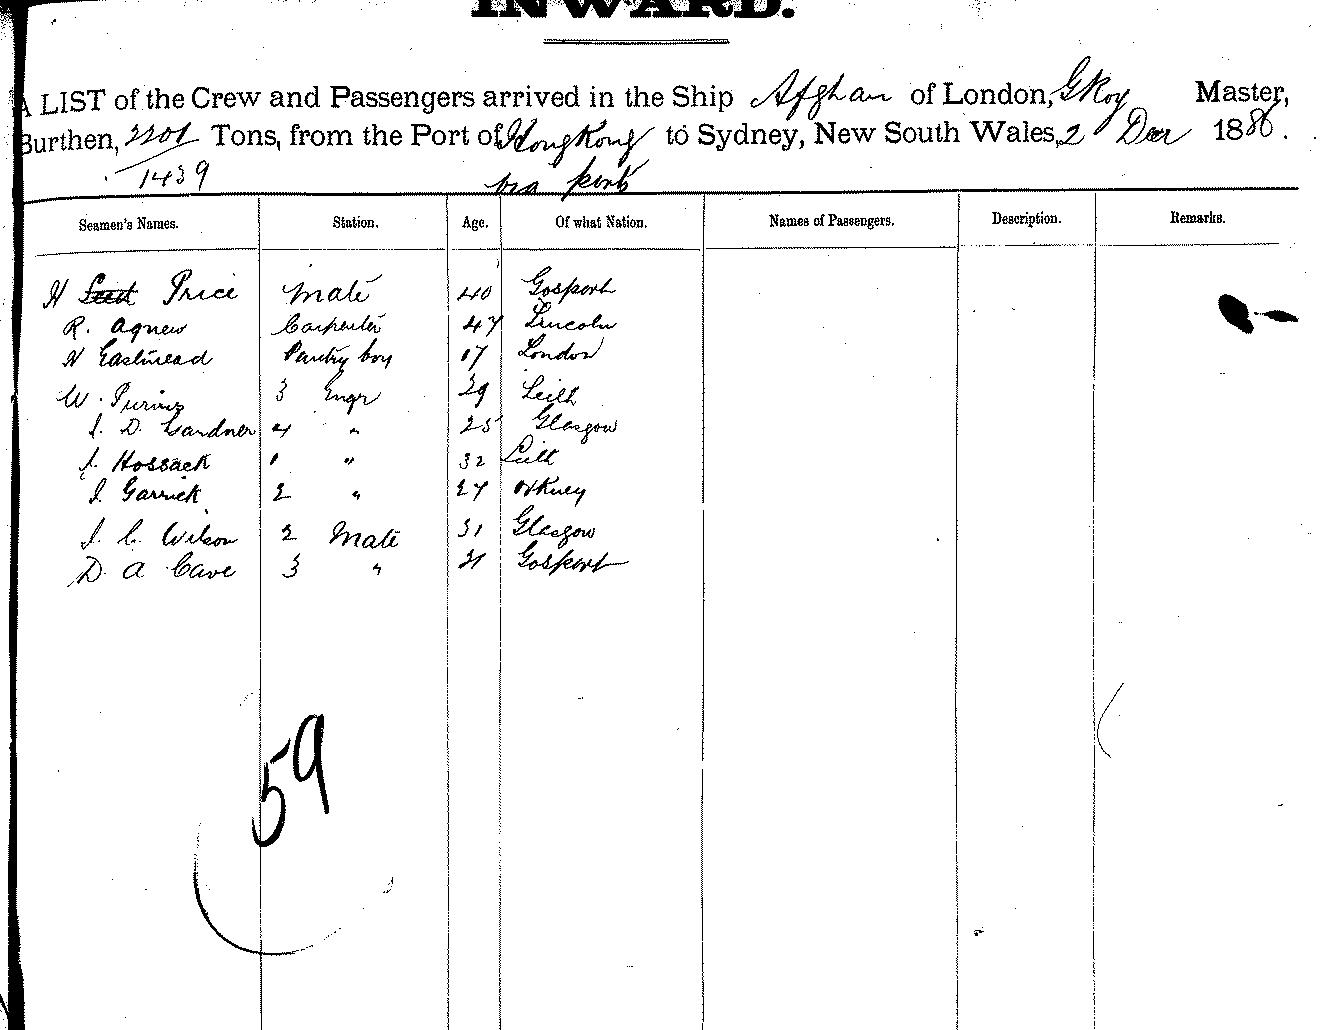 INWARD.
A LIST of the Crew and Passengers arrived in the Ship Afghan of London, G Roy Master,
Burthen, 2201 Tons, from the Port of Hong Kong to Sydney, New South Wales, 2 Dec 1886.
1439 via ports
Seamen's Names. Station. Age. Of what Nation. Names of Passengers. Description. Remarks.
H Price Mate 40 Gosport
R. Agnew Carpenter 47 Lincoln
H Eastmead Pantry boy 17 London
W. Purves 3 Engr 29 Leith
J. D. Gardner 4 " 25 Glasgow
J. Hossack 1 " 32 Leith
J. Garrick 2 " 27 Orkney
J. C. Wilson 2 Mate 31 Glasgow
D A Cave 3 " 21 Gosport
59